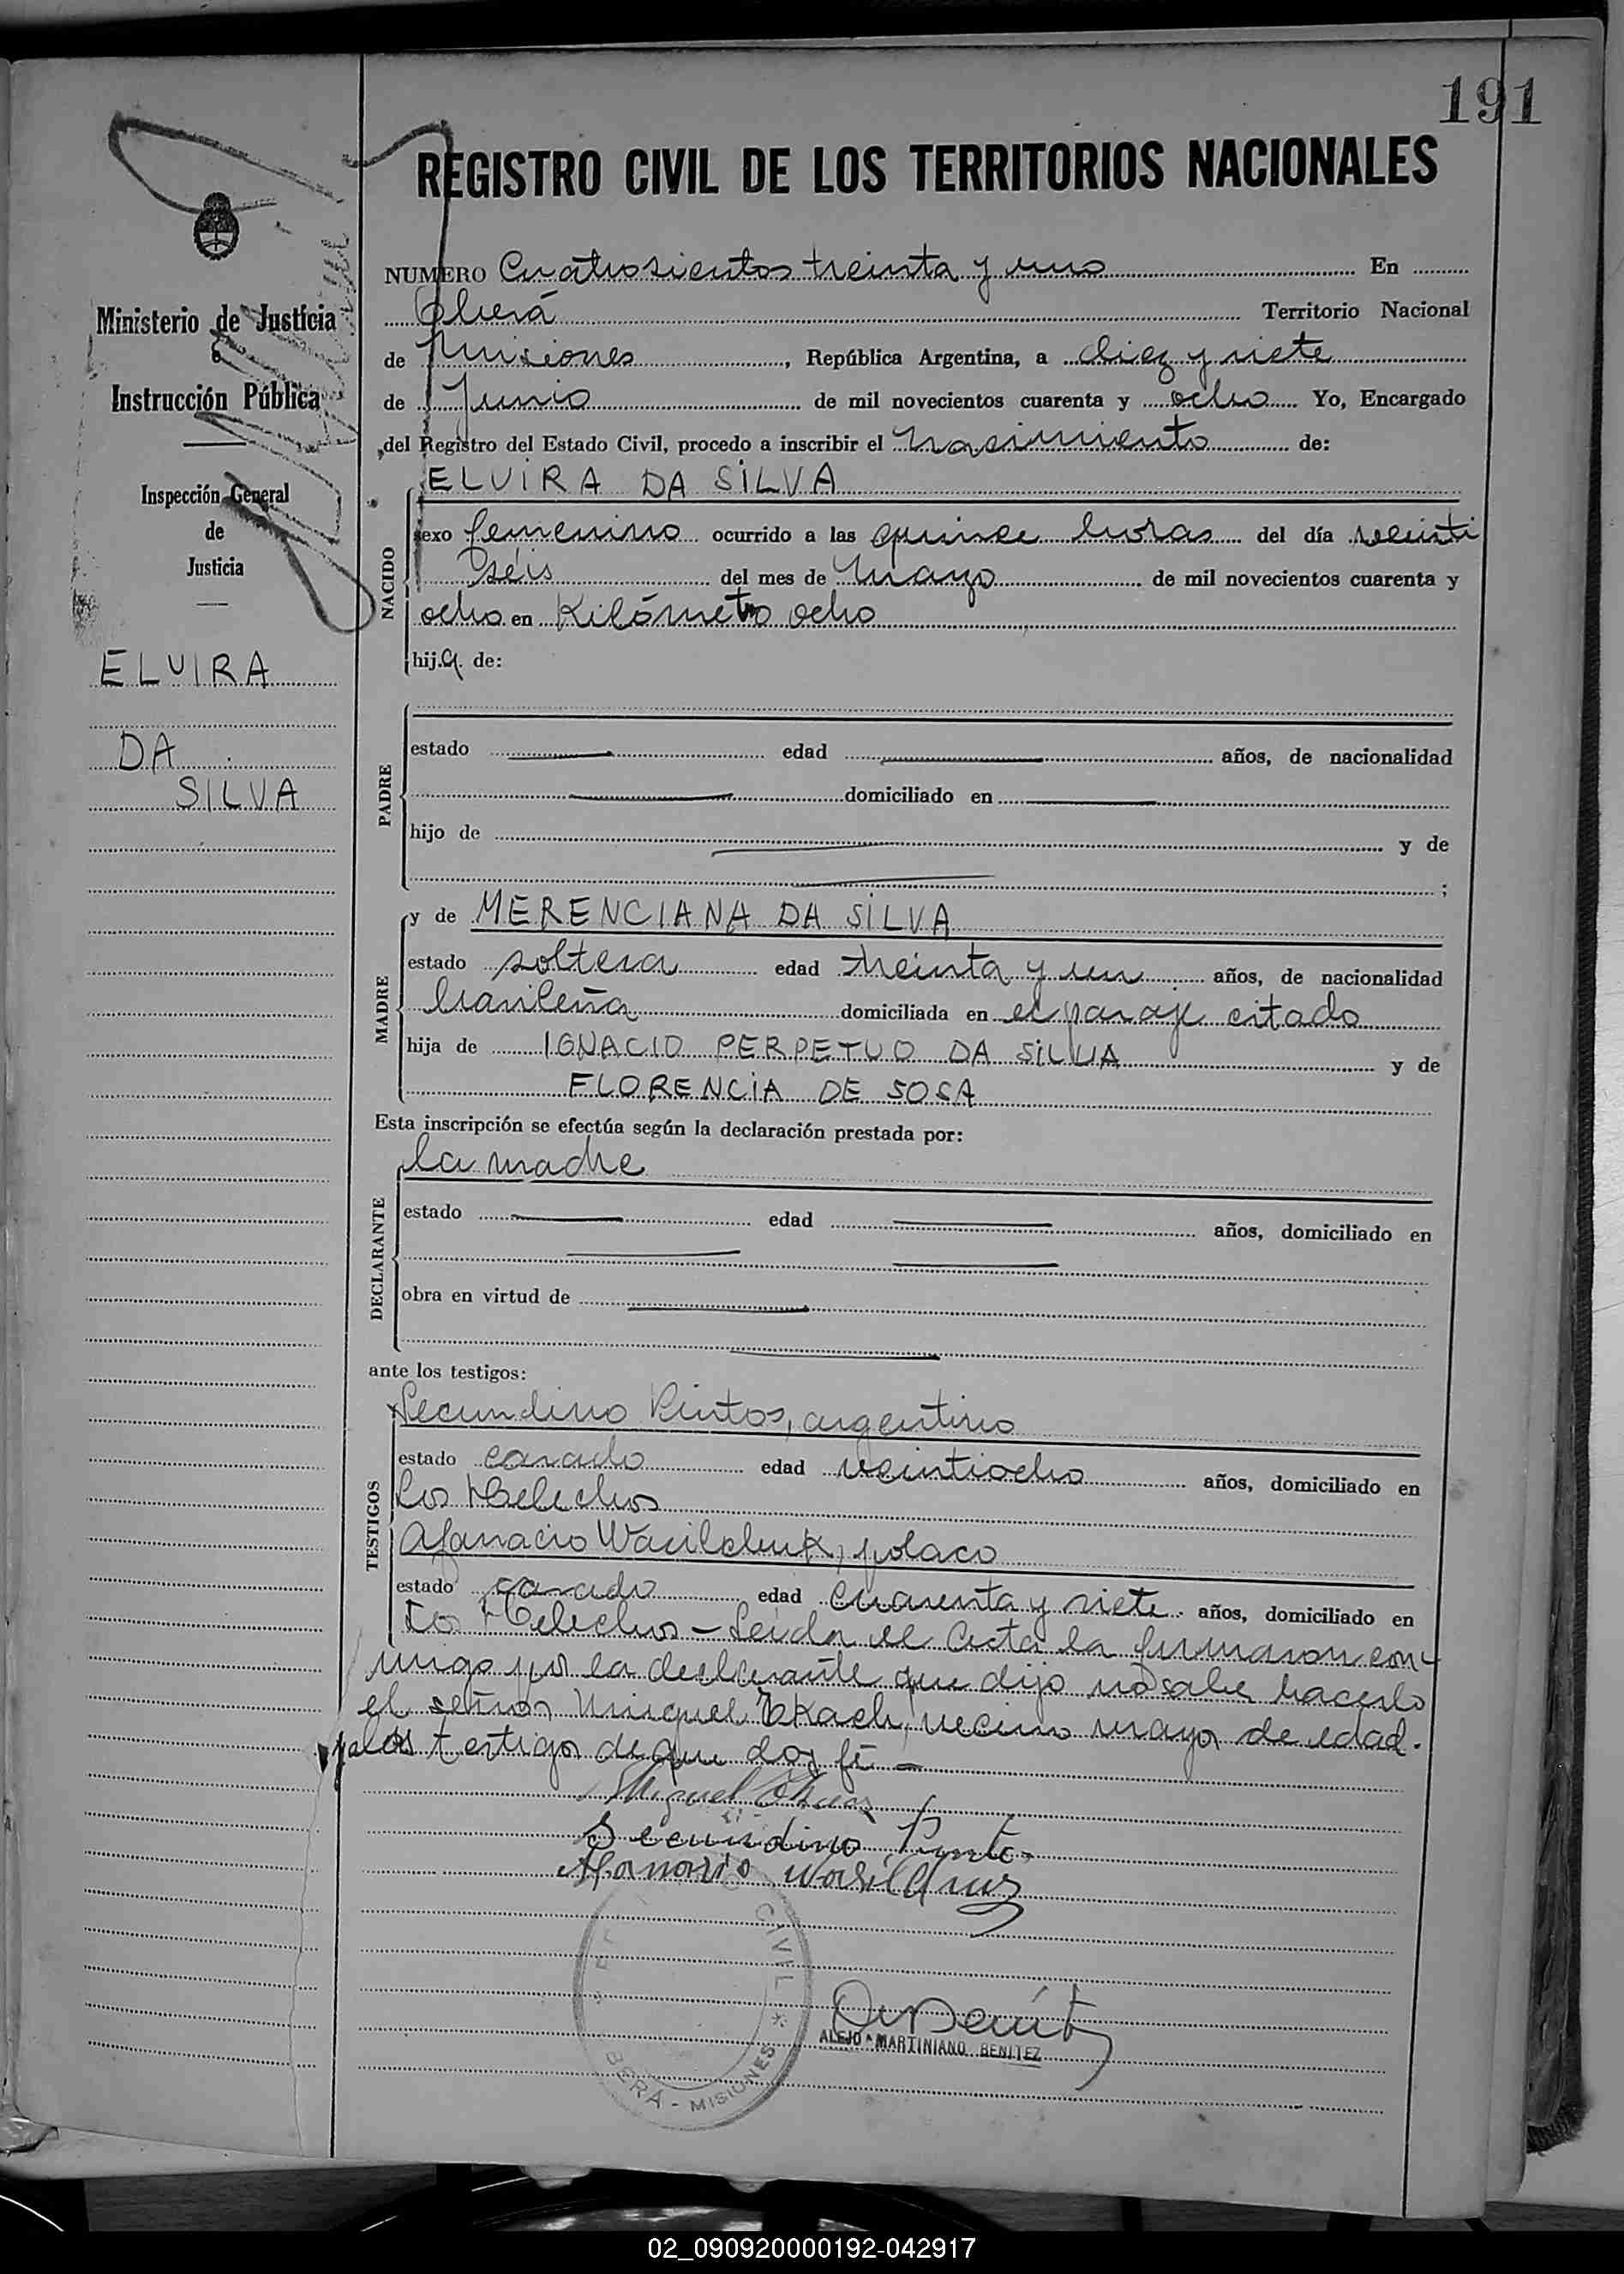 191
REGISTRO CIVIL DE LOS TERRITORIOS NACIONALES
Ministerio de Justicia
e
Instrucción Pública
Inspección General
de
Justicia
ELVIRA
DA
SILVA
NUMERO Cuatrosientos treinta y uno En
Oberá Territorio Nacional
de Misiones, República Argentina, a diez y siete
de Junio de mil novecientos cuarenta y ocho Yo, Encargado
del Registro del Estado Civil, procedo a inscribir el nacimiento de:
NACIDO
ELVIRA DA SILVA
sexo femenino ocurrido a las quince horas del día veinti
séis del mes de Mayo de mil novecientos cuarenta y
ocho en Kilómetro ocho
hija de:
PADRE
estado edad años, de nacionalidad
domiciliado en
hijo de y de
;
MADRE
y de MERENCIANA DA SILVA
estado soltera edad treinta y un años, de nacionalidad
brasileña domiciliada en el paraje citado
hija de IGNACIO PERPETUO DA SILVA y de
FLORENCIA DE SOSA
Esta inscripción se efectúa según la declaración prestada por:
DECLARANTE
la madre
estado edad años, domiciliado en
obra en virtud de
ante los testigos:
TESTIGOS
Secundino Pintos, argentino
estado casado edad veintiocho años, domiciliado en
Los Helechos
Afanacio Wasilchuk, polaco
estado casado edad cuarenta y siete años, domiciliado en
Los Helechos - Leída el Acta la firmaron con-
migo por la declarante que dijo no saber hacerlo
el señor Miguel, vecino mayor de edad.
y los testigos de que doy fé -
Miguel
Secundino Pinto
Afanacio
CIVIL * OBERÁ - MISIONES
ALEJO MARTINIANO BENITEZ
02_090920000192-042917